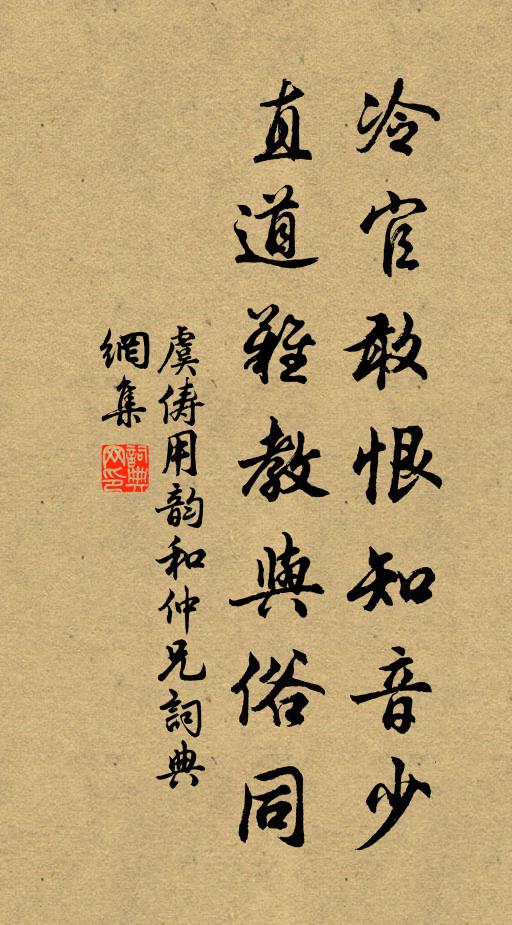 冷官敢恨知音少
直道難教與俗同
虞儔用韵和仲兄詞典
網集
詞典網印